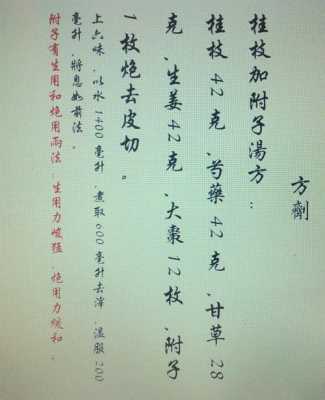 方劑
桂枝加附子湯方：
桂枝 42 克、芍藥 42 克、甘草 28
克、生姜 42 克、大棗 12 枚、附子
1 枚炮去皮切。
上六味，以水 1400 毫升，煮取 600 毫升去滓，溫服 200
毫升，將息如前法。
附子有生用和炮用兩法：生用力峻猛，炮用力緩和。